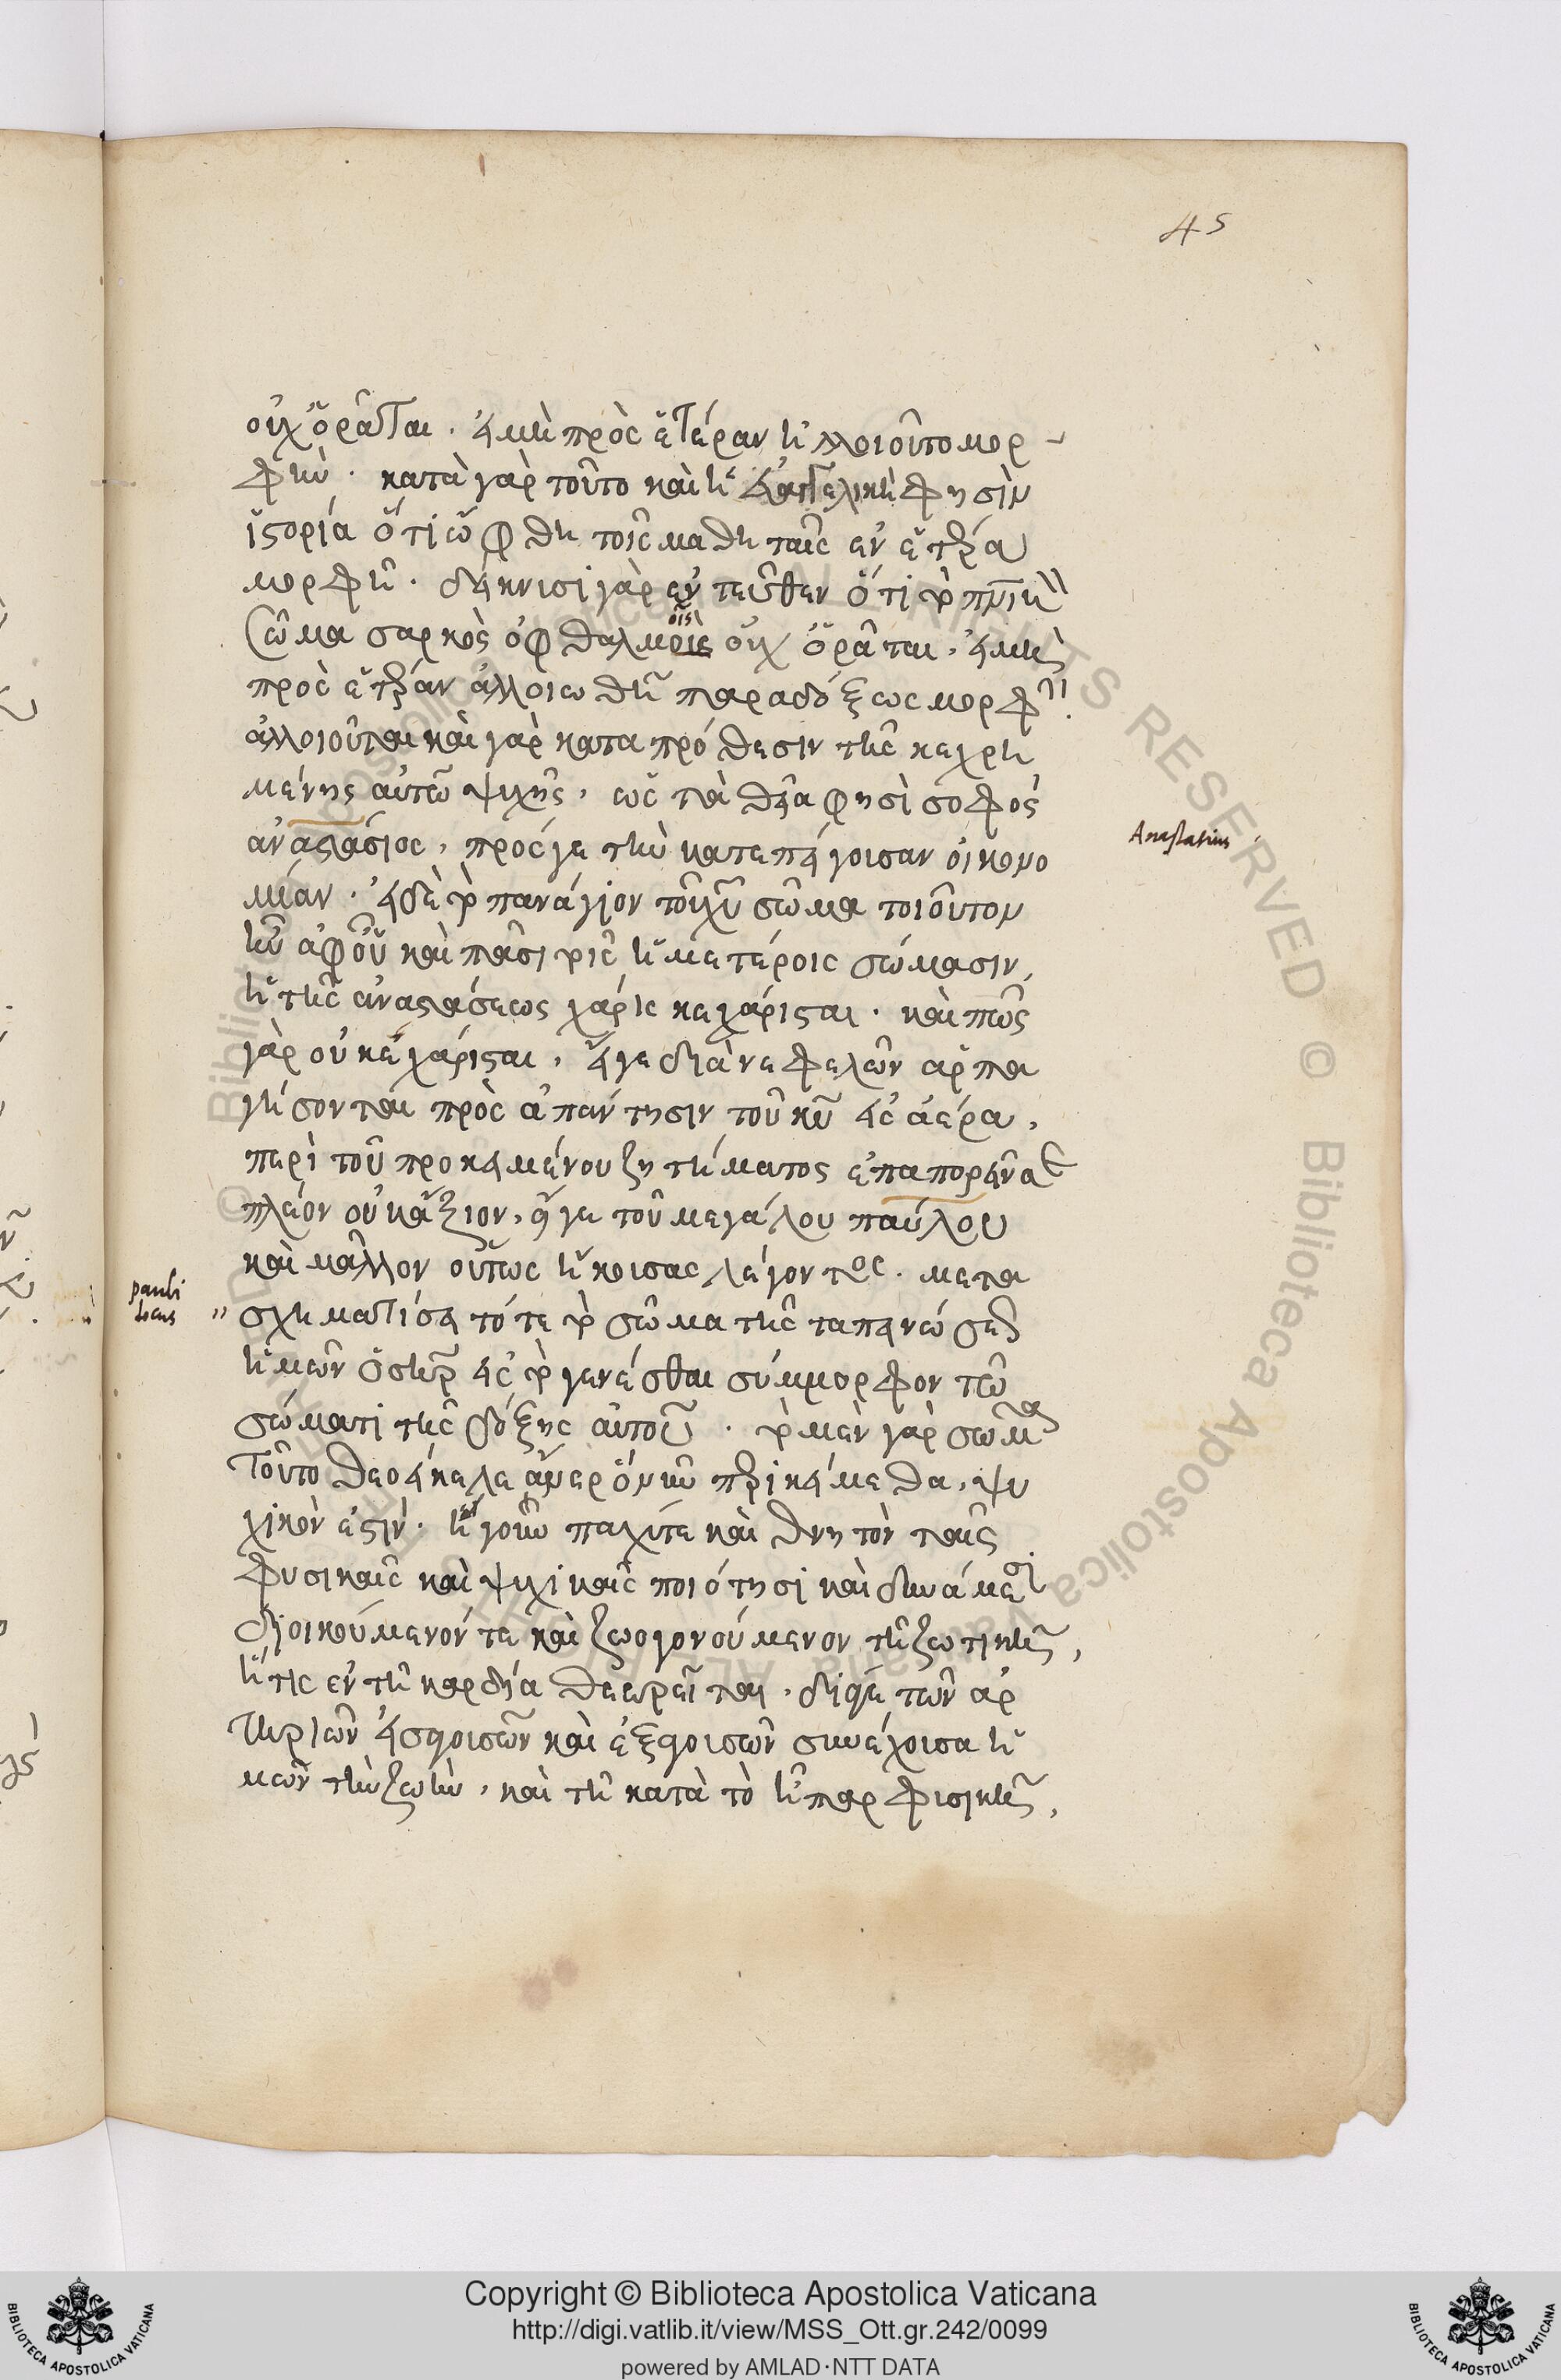 45
οὐχ ὁρᾶται. εἰμὴ πρὸς ἑτέραν ἠλλοιοῦτο μορ-
φήν. κατὰ γὰρ τοῦτο καὶ ἡ εὐαγγελικὴ φησὶν
ἱστορία ὅτι ὤφθη τοῖς μαθηταῖς ἐν ἑτέρα
μορφῆ. δείκνυσι γὰρ ἐντεῦθεν ὅτι τὸ πνικὸν
σῶμα σαρκὸς ὀφθαλμοῖς οὐχ ὁρᾶται, εἰμὴ
πρὸς ἑτέραν ἀλλοιωθῆ παραδόξως μορφήν.
ἀλλοιοῦται καὶ γὰρ κατὰ πρόθεσιν τῆς κεχρη
μένης αὐτῶ ψυχῆς, ὡς τὰ θεῖα φησὶ σοφὸς
ἀναστάσιος, πρός γε τὴν κατεπείγουσαν οἰκονο
μίαν. εἰ δὲ τὸ πανάγιον τοῦ χυ σῶμα τοιοῦτον
ἦν ἀφ' οὗ καὶ πᾶσι τοῖς ἡμετέροις σώμασιν,
ἡ τῆς ἀναστάσεως χάρις κεχάρισται. καὶ πῶς
γὰρ οὐ κεχάρισται, εἴγε διὰ νεφελῶν ἁρπα
γήσονται πρὸς ἀπάντησιν τοῦ κυ εἰς ἀέρα,
περὶ τοῦ προκειμένου ζητήματος ἐπαπορεῖναι
πλέον οὐκ ἄξιον, ὅγε τοῦ μεγάλου παύλου
καὶ μᾶλλον οὕτως ἤκουσας λέγοντος. μετα
σχηματίσει τότε τὸ σῶμα τῆς ταπεινώσεως
ἡμῶν ὁ σωτὴρ εἰς τὸ γενέσθαι σύμμορφον τῶ
σώματι τῆς δόξης αὐτοῦ. τὸ μὲν γὰρ σῶμα
τοῦτο θεοείκελε ἄνερ ὃ νῦν περικείμεθα, ψυ
χικὸν ἐστιν. ἤγουν παχύτε καὶ θνητὸν ταῖς
φυσικαῖς καὶ ψυχικαῖς ποιότησι καὶ δυνάμεσι
διοικούμενόν τε καὶ ζωογονούμενον τῆ ζωτικῆ,
ἥτις ἐν τῆ καρδία θεωρεῖται, δι' ἧς τῶν ἀρ
τηριῶν εἰσφοισῶν καὶ ἐξφοισῶν συνέχουσα ἡ
μῶν τὴν ζωὴν, καὶ τῆ κατὰ τὸ ἧπαρ φυσικῆ,
Anastasius
pauli
locus
Copyright © Biblioteca Apostolica Vaticana
http://digi.vatlib.it/view/MSS_Ott.gr.242/0099
powered by AMLAD·NTT DATA
BIBLIOTECA APOSTOLICA VATICANA
BIBLIOTECA APOSTOLICA VATICANA